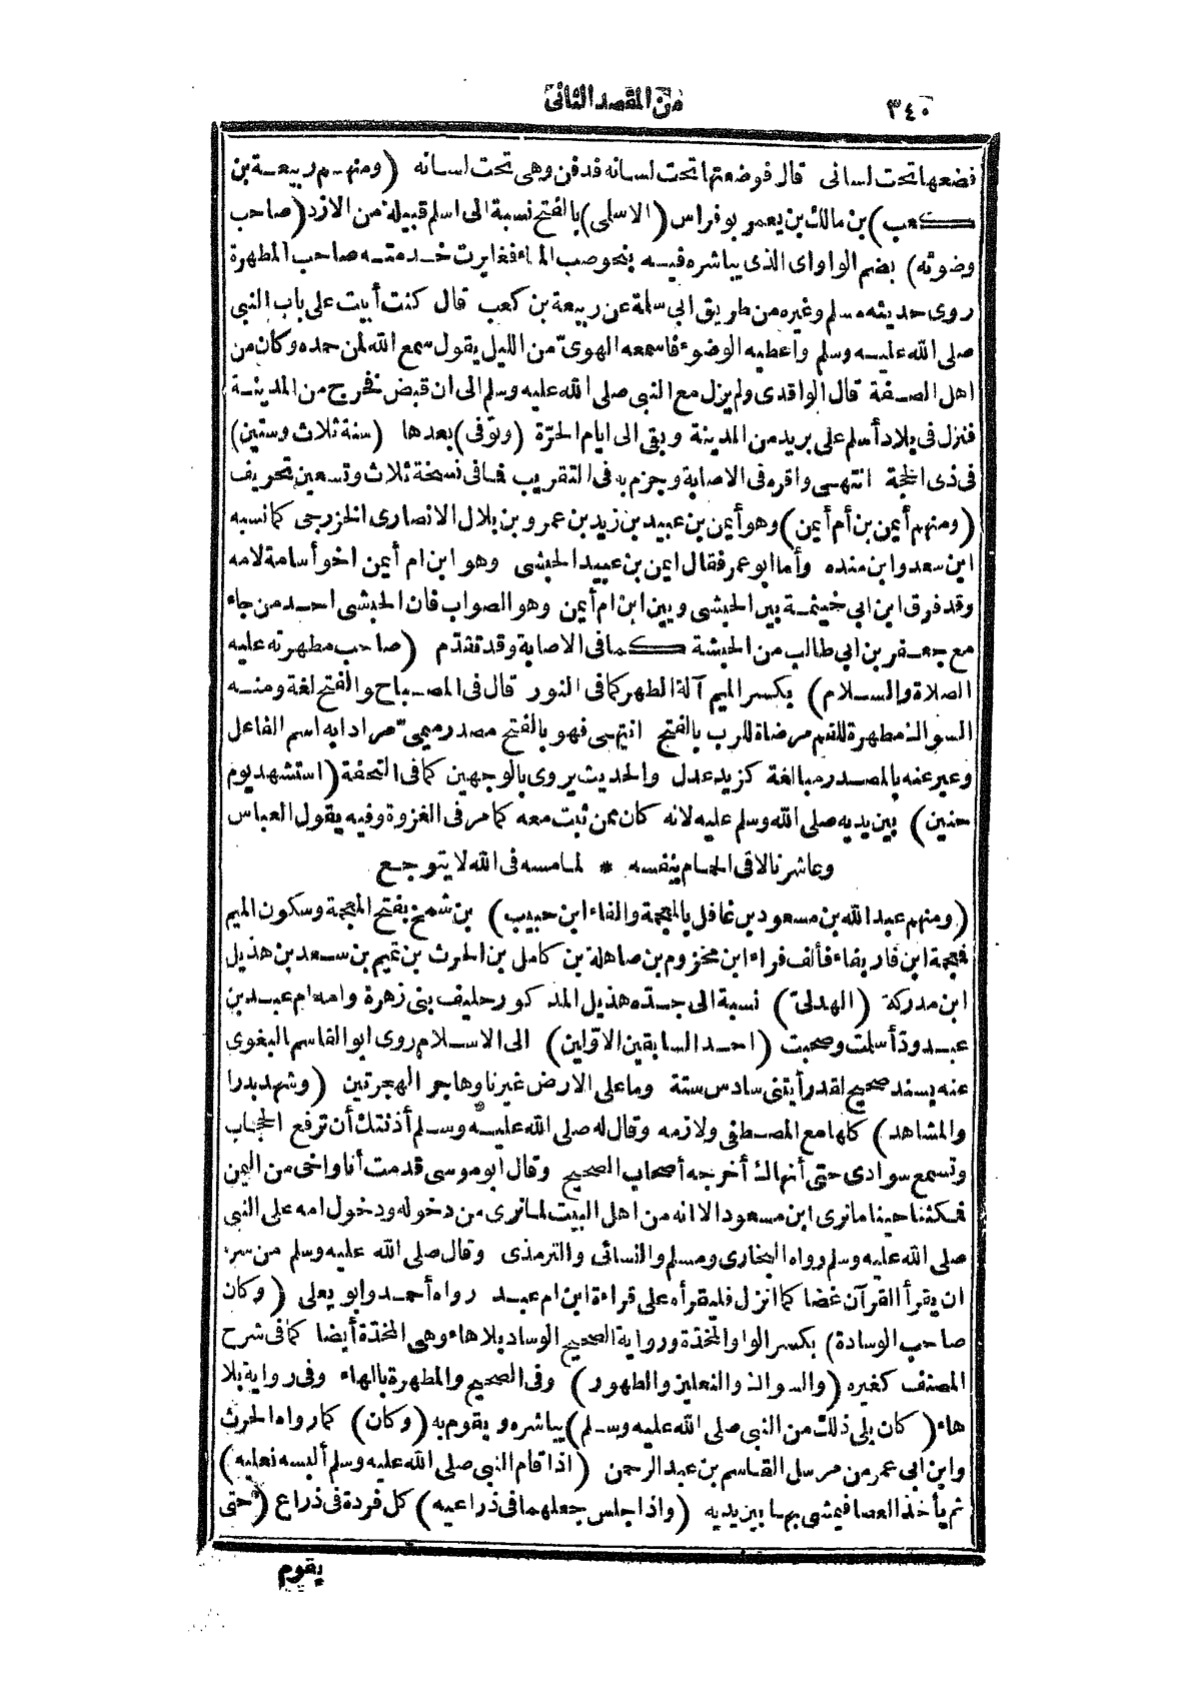 ٣٤٠ من المقصد الثانى
فضعها تحت لسانى قال فوضعتها تحت لسانه فدفن وهى تحت لسانه (ومنهم ربيعة بن
كعب) بن مالك بن يعمر بو فراس (الاسلمى) بالفتح نسبة الى اسلم قبيلة من الازد (صاحب
وضوئه) بضم الواو اى الذى يباشره فيه بنحو صب الماء فغايرت خدمته صاحب المطهرة
روى حديثه مسلم وغيره من طريق ابى سلمة عن ربيعة بن كعب قال كنت أبيت على باب النبى
صلى الله عليه وسلم واعطيه الوضوء فاسمعه الهوىّ من الليل يقول سمع الله لمن حمده وكان من
اهل الصفة قال الواقدى ولم يزل مع النبى صلى الله عليه وسلم الى ان قبض فخرج من المدينة
فنزل فى بلاد أسلم على بريد من المدينة وبقى الى ايام الحرّة (وتوفى) بعدها (سنة ثلاث وستين)
فى ذى الحجة انتهى واقره فى الاصابة وجزم به فى التقريب فما فى نسخة ثلاث وتسعين تحريف
(ومنهم أيمن بن أم أيمن) وهو أيمن بن عبيد بن زيد بن عمرو بن بلال الانصارى الخزرجى كما نسبه
ابن سعد وابن منده وأما ابو عمر فقال ايمن بن عبيد الحبشى وهو ابن ام أيمن اخو أسامة لامه
وقد فرق ابن ابى خيثمة بين الحبشى وبين ابن ام أيمن وهو الصواب فان الحبشى احد من جاء
مع جعفر بن ابى طالب من الحبشة كما فى الاصابة وقد تقدّم (صاحب مطهرته عليه
الصلاة والسلام) بكسر الميم آلة الطهر كما فى النور قال فى المصباح والفتح لغة ومنه
السواك مطهرة للفم مرضاة للرب بالفتح انتهى فهو بالفتح مصدر ميمىّ مرادا به اسم الفاعل
وعبر عنه بالمصدر مبالغة كزيد عدل والحديث يروى بالوجهين كما فى التحفة (استشهد يوم
حنين) بين يديه صلى الله وسلم عليه لانه كان ممن ثبت معه كما مر فى الغزوة وفيه يقول العباس
وعاشرنا لاقى الحمام بنفسه * لما مسه فى الله لا يتوجع
(ومنهم عبد الله بن مسعود بن غافل بالمعجمة والفاء ابن حبيب) بن شمخ بفتح المعجمة وسكون الميم
فمعجمة ابن فار بفاء فألف فراء ابن مخزوم بن صاهلة بن كامل بن الحرث بن تميم بن سعد بن هذيل
ابن مدركة (الهذلىّ) نسبة الى جدّه هذيل المذكور حليف بنى زهرة وامه ام عبد بن
عبد ودّ أسلمت وصحبت (احد السابقين الاوّلين) الى الاسلام روى ابو القاسم البغوى
عنه بسند صحيح لقد رأيتنى سادس ستة وما على الارض غيرنا وهاجر الهجرتين (وشهد بدرا
والمشاهد) كلها مع المصطفى ولازمه وقال له صلى الله عليه وسلم أذنتك أن ترفع الحجاب
وتسمع سوادى حتى أنهاك أخرجه أصحاب الصحيح وقال ابو موسى قدمت أنا واخى من اليمن
فمكثنا حينا ما نرى ابن مسعود الا انه من اهل البيت لما نرى من دخوله ودخول امه على النبى
صلى الله عليه وسلم رواه البخارى ومسلم والنسائى والترمذى وقال صلى الله عليه وسلم من سره
ان يقرأ القرآن غضا كما انزل فليقرأه على قراءة ابن ام عبد رواه أحمد وابو يعلى (وكان
صاحب الوسادة) بكسر الواو المخدّة ورواية الصحيح الوساد بلا هاء وهى المخدّة أيضا كما فى شرح
المصنف كغيره (والسواك والنعلين والطهور) وفى الصحيح والمطهرة بالهاء وفى رواية بلا
هاء (كان يلى ذلك من النبى صلى الله عليه وسلم) يباشره ويقوم به (وكان) كما رواه الحرث
وابن ابى عمر من مرسل القاسم بن عبد الرحمن (اذا قام النبى صلى الله عليه وسلم ألبسه نعليه)
ثم يأخذ العصا فيمشى بها بين يديه (واذا جلس جعلهما فى ذراعيه) كل فردة فى ذراع (حتى
يقوم